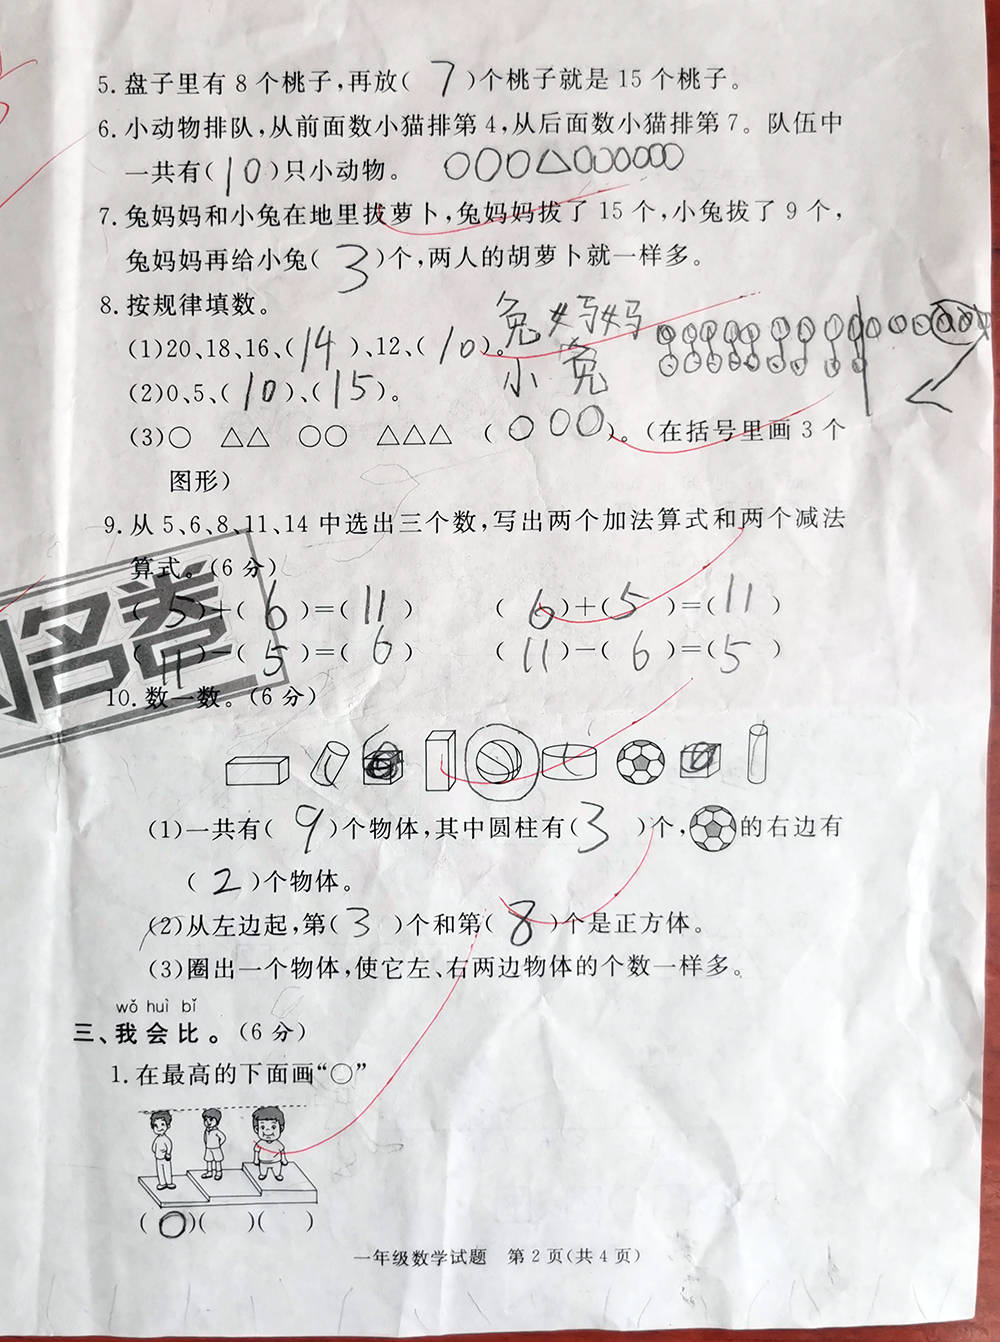 5. 盘子里有 8 个桃子,再放( 7 )个桃子就是 15 个桃子。
6. 小动物排队,从前面数小猫排第 4,从后面数小猫排第 7。队伍中
一共有( 10 )只小动物。 ○○○△○○○○○○
7. 兔妈妈和小兔在地里拔萝卜,兔妈妈拔了 15 个,小兔拔了 9 个,
兔妈妈再给小兔( 3 )个,两人的胡萝卜就一样多。
8. 按规律填数。
兔妈妈
小兔
(1)20、18、16、( 14 )、12、( 10 )。
(2)0、5、( 10 )、( 15 )。
(3)○ △△ ○○ △△△ ( ○○○ )。(在括号里画 3 个
图形)
9. 从 5、6、8、11、14 中选出三个数,写出两个加法算式和两个减法
算式。(6 分)
( 5 )+( 6 )=( 11 ) ( 6 )+( 5 )=( 11 )
( 11 )-( 5 )=( 6 ) ( 11 )-( 6 )=( 5 )
名卷
10. 数一数。(6 分)
(1)一共有( 9 )个物体,其中圆柱有( 3 )个, 的右边有
( 2 )个物体。
(2)从左边起,第( 3 )个和第( 8 )个是正方体。
(3)圈出一个物体,使它左、右两边物体的个数一样多。
wǒ huì bǐ
三、我会比。(6 分)
1. 在最高的下面画“○”
( ○ )( )( )
一年级数学试题 第 2 页(共 4 页)